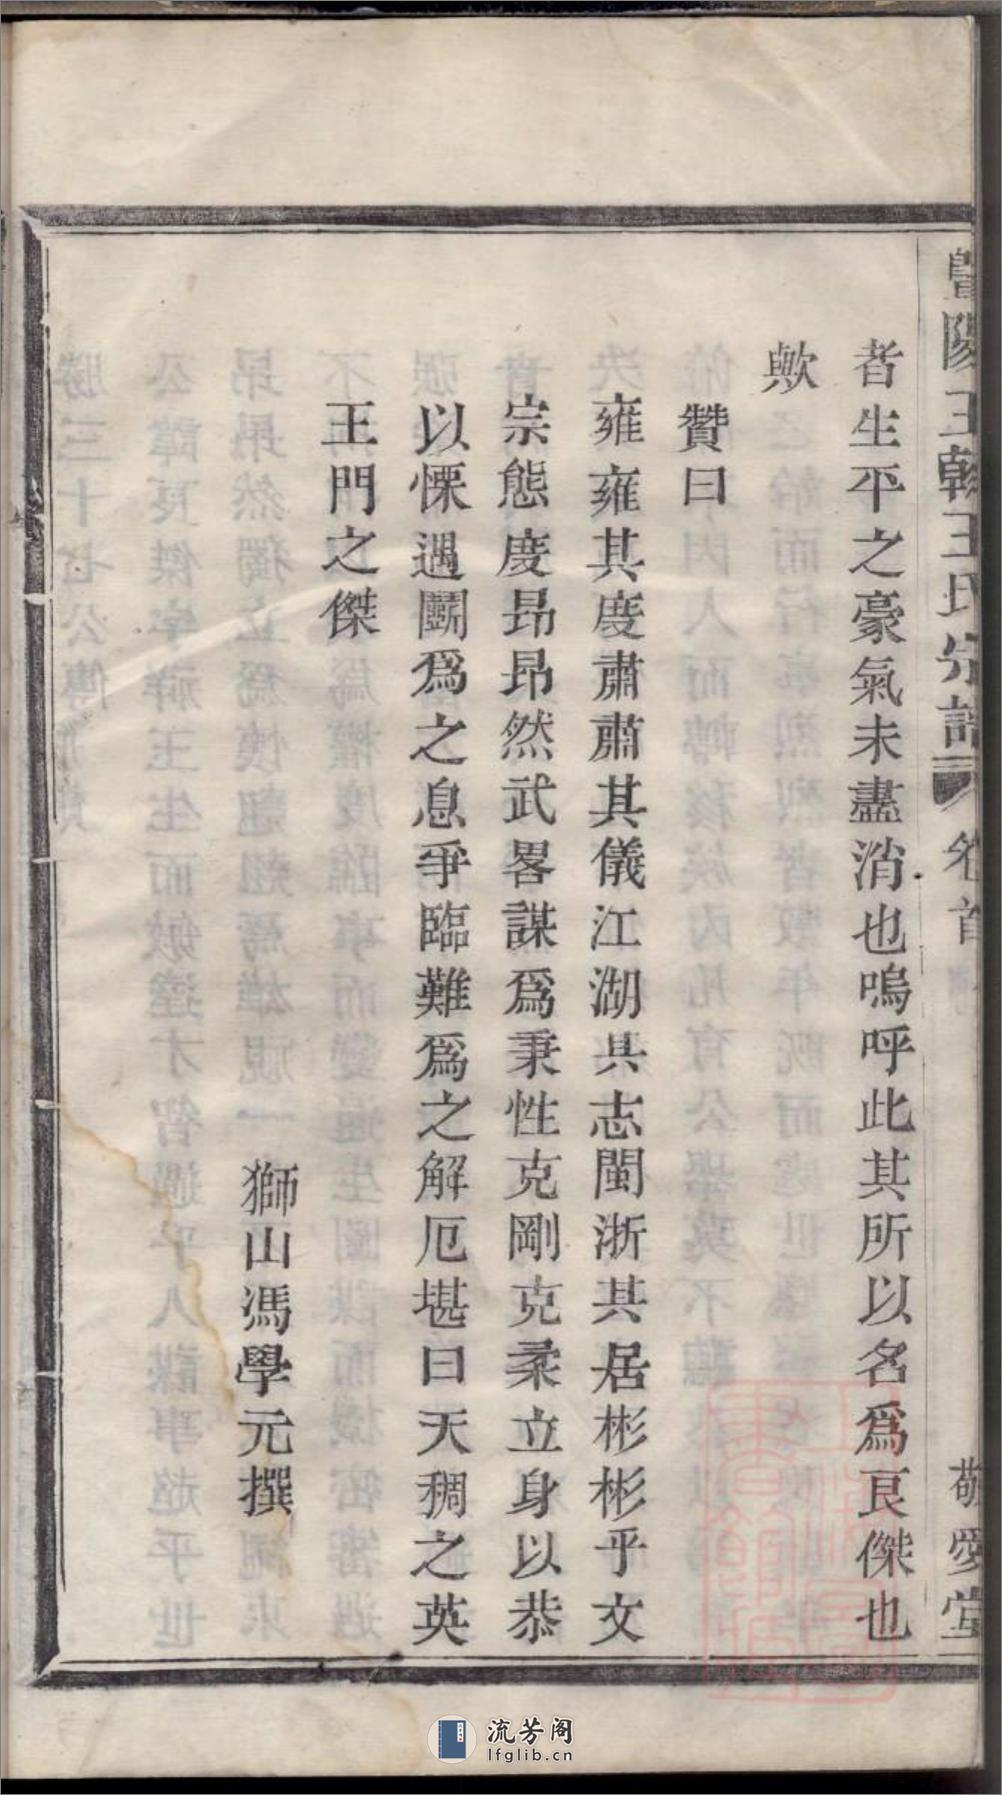 暨陽王韓王氏宗譜 卷首 敬愛堂
者生平之豪氣未盡消也嗚呼此其所以名爲良傑也
歟
贊曰
雍雍其度肅肅其儀江湖其志閩浙其居彬彬乎文
宗態度昂昂然武畧謀爲秉性克剛克柔立身以恭
以慄遇鬭爲之息爭臨難爲之解厄堪曰天稠之英
王門之傑
獅山馮學元撰
流芳阁
lfglib.cn